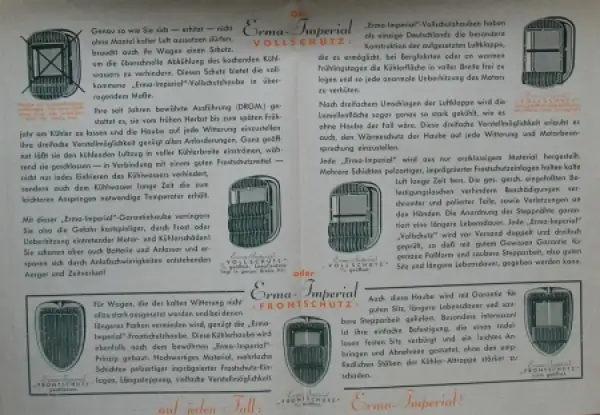 Der
Erma-Imperial
VOLLSCHUTZ:
Genau so wie Sie sich — erhitzt — nicht
ohne Mantel kalter Luft aussetzen dürfen,
braucht auch Ihr Wagen einen Schutz,
um die überschnelle Abkühlung des kochenden Kühl-
wassers zu verhindern. Diesen Schutz bietet die voll-
kommene „Erma-Imperial"-Vollschutzhaube in über-
ragendem Maße.
Ihre seit Jahren bewährte Ausführung (DRGM.) ge-
stattet es, sie vom frühen Herbst bis zum späten Früh-
jahr am Kühler zu lassen und die Haube auf jede Witterung einzustellen
Ihre dreifache Verstellmöglichkeit genügt allen Anforderungen. Ganz geöff-
net läßt sie den kühlenden Luftzug in voller Kühlerbreite einströmen, wäh-
rend sie geschlossen — in Verbindung mit einem guten Frostschutzmittel —
nicht nur jedes Einfrieren des Kühlwassers verhindert,
sondern auch dem Kühlwasser lange Zeit die zum
leichteren Anspringen notwendige Temperatur erhält.
Mit dieser „Erma-Imperial"-Garantiehaube verringern
Sie also die Gefahr kostspieliger, durch Frost oder
Ueberhitzung eintretender Motor- und Kühlerschäden!
Sie schonen aber auch Batterie und Anlasser und er-
sparen sich durch Anlaßschwierigkeiten entstehenden
Aerger und Zeitverlust!
Erma-Imperial
"VOLLSCHUTZ"
„Erma-Imperial"-Vollschutzhauben haben
als einzige Deutschlands die besondere
Konstruktion der aufgesetzten Luftklappe,
die es ermöglicht, bei Bergfahrten oder an warmen
Frühlingstagen die Kühlerfläche in voller Breite frei zu
legen und so jede anormale Ueberhitzung des Motors
zu verhüten.
Nach dreifachem Umschlagen der Luftklappe wird die
Lamellenfläche sogar genau so stark gekühlt, wie es
ohne Haube der Fall wäre. Diese dreifache Verstellmöglichkeit erlaubt es
auch, den Wärmeschutz der Haube auf jede Witterung und Motorbean-
spruchung einzustellen.
Jede „Erma-Imperial" wird aus nur erstklassigem Material hergestellt.
Mehrere Schichten pelzartiger, imprägnierter Frostschutzeinlagen halten kalte
Luft lange Zeit fern. Die ges. gesch. eingefaßten Be-
festigungslaschen verhindern Beschädigungen ver-
chromter und polierter Teile, sowie Verletzungen an
den Händen. Die Anordnung der Steppnähte garan-
tiert eine längere Lebensdauer. Jede „Erma-Imperial"
„Vollschutz" wird vor Versand doppelt und dreifach
geprüft, so daß mit gutem Gewissen Garantie für
genaue Paßform und saubere Stepparbeit, also guten
Sitz und längere Lebensdauer, gegeben werden kann.
Erma-Imperial
"VOLLSCHUTZ"
oder
Erma-Imperial
-FRONTSCHUTZ-
Für Wagen, die der kalten Witterung nicht
allzu stark ausgesetzt werden und bei denen
längeres Parken vermieden wird, genügt die „Erma-
Imperial"-Frontschutzhaube. Diese Kühlerhaube wird
ebenfalls nach dem bewährten „Erma-Imperial"-
Prinzip gebaut. Hochwertiges Material, mehrfache
Schichten pelzartiger imprägnierter Frostschutz-Ein-
lagen, Längssteppung, vielfache Verstellmöglichkeit
Auch diese Haube wird mit Garantie für
guten Sitz, längere Lebensdauer und sau-
bere Stepparbeit geliefert. Besonders interessant
ist ihre einfache Befestigung, die einen tadel-
losen festen Sitz verbürgt und ein leichtes An-
bringen und Abnehmen gestattet, ohne den emp-
findlichen Stäben der Kühler-Attrappe stärker zu
schaden.
Erma-Imperial
"FRONTSCHUTZ"
Erma-Imperial
"FRONTSCHUTZ"
auf jeden Fall:
Erma-Imperial!